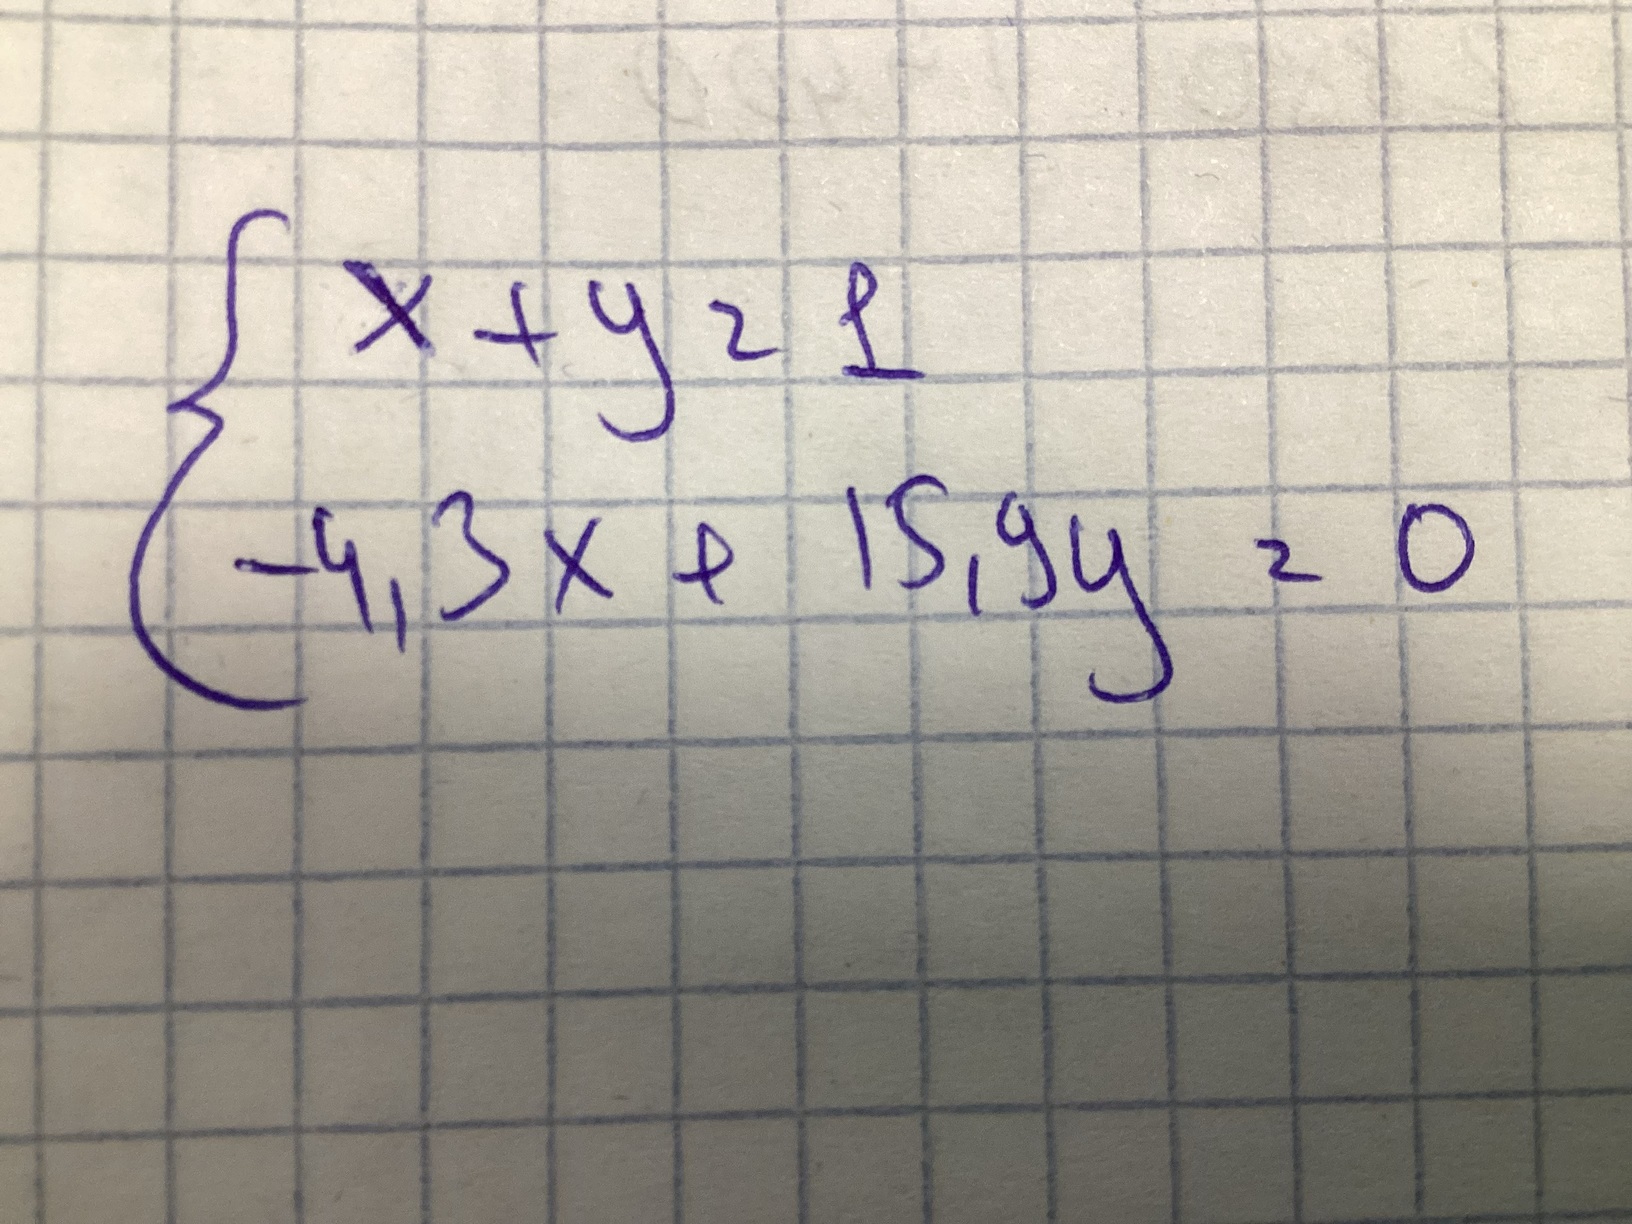 x + y = 1
-4,3x + 15,9y = 0